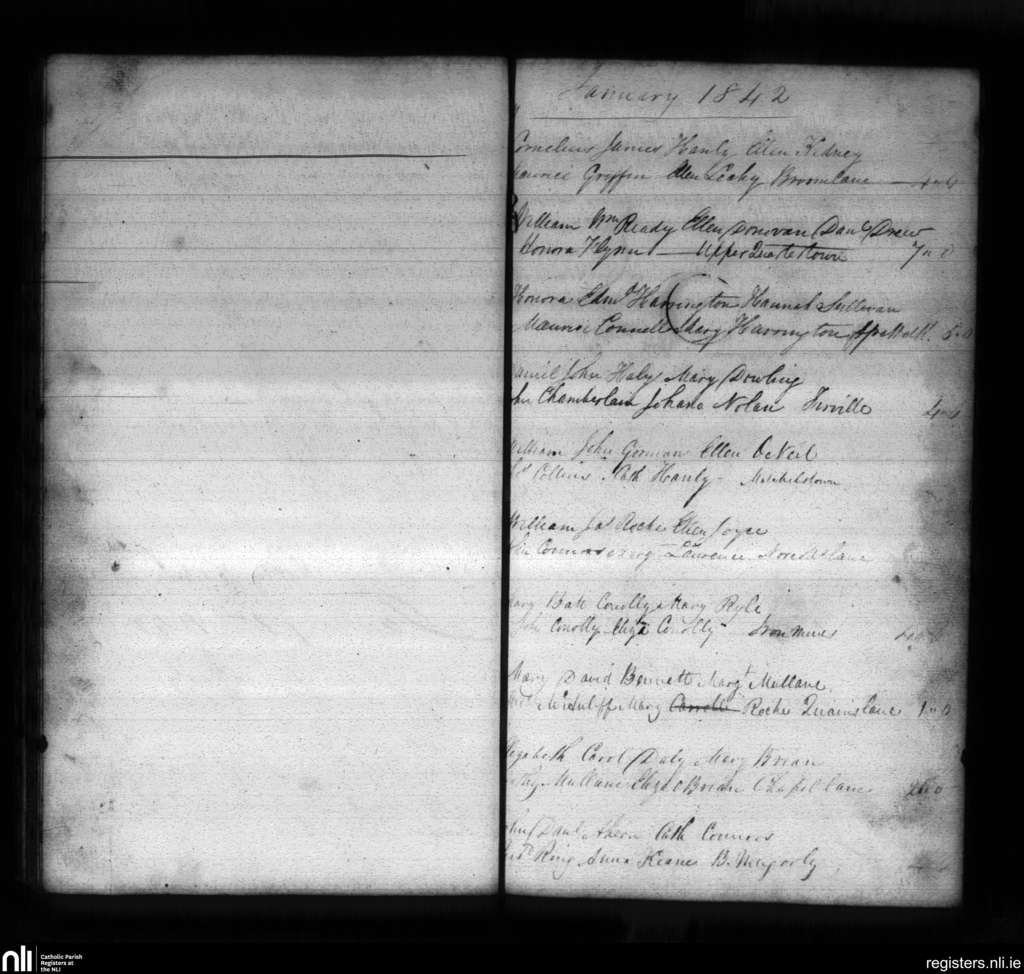 January 1842
Cornelius James Hanly Ellen Kidney
Maurice Griffin Ellen Leahy Broomlane 4"6
William Wm Ready Ellen Donovan Danl Drew
Honora Flynn Upper Quartertown 7"
Honora Edmd Harrington Hannah Sullivan
Maurice Connell Mary Harrington 5"
Daniel John Haly Mary Dowling
John Chamberlain Johana Nolan Firville 4"
William John Gorman Ellen O Neil
Collins Cath Hanly Mitchelstown
William Jas Roche Ellen Joyce
John Connors Margt Laurence lane
Mary Batt Conolly Mary Ryle
John Conolly Eliza Conolly Iron Mines
Mary David Bennett Margt Mullane
McAuliffe Mary Carroll Roche Quains lane 1"0
Elizabeth Carol Daly Mary Brien
Mullane Eliza O Brien Chapel lane
John Danl Ahern Cath Connors
Ring Anna Keane B.
nli
Catholic Parish
Registers at
the NLI
registers.nli.ie